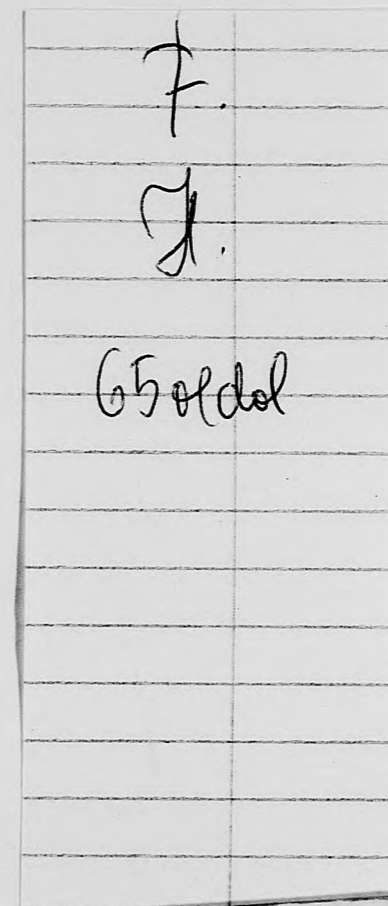 7.
H.
65 oldal